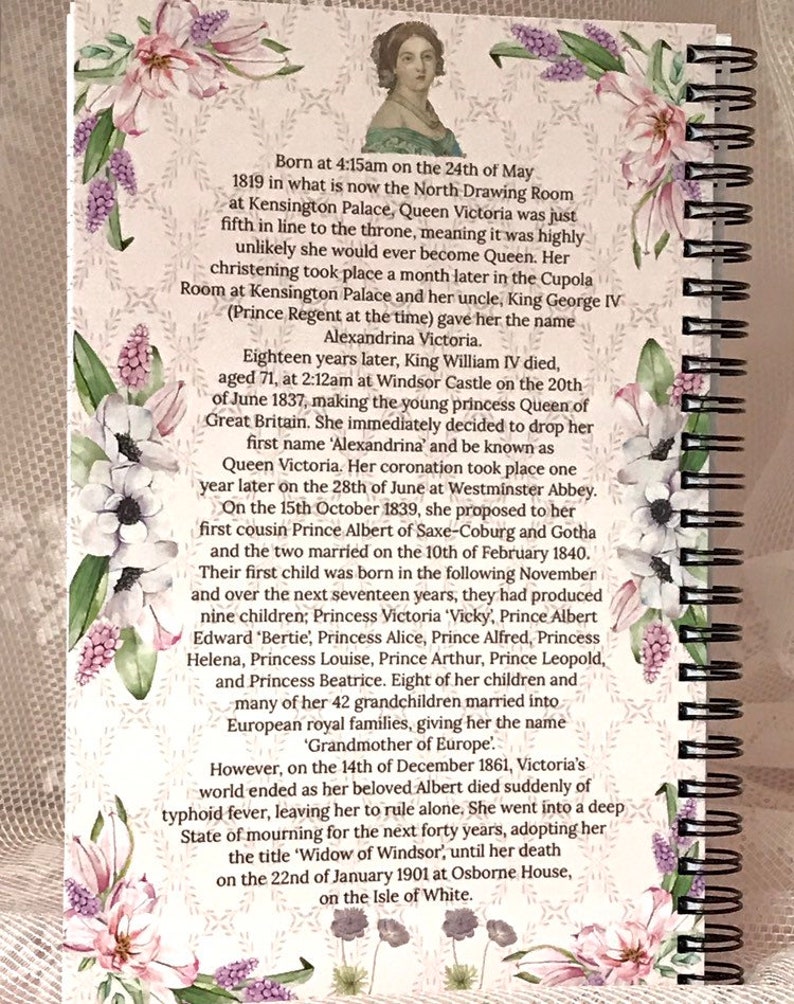 Born at 4:15am on the 24th of May
1819 in what is now the North Drawing Room
at Kensington Palace, Queen Victoria was just
fifth in line to the throne, meaning it was highly
unlikely she would ever become Queen. Her
christening took place a month later in the Cupola
Room at Kensington Palace and her uncle, King George IV
(Prince Regent at the time) gave her the name
Alexandrina Victoria.
Eighteen years later, King William IV died,
aged 71, at 2:12am at Windsor Castle on the 20th
of June 1837, making the young princess Queen of
Great Britain. She immediately decided to drop her
first name ‘Alexandrina’ and be known as
Queen Victoria. Her coronation took place one
year later on the 28th of June at Westminster Abbey.
On the 15th October 1839, she proposed to her
first cousin Prince Albert of Saxe-Coburg and Gotha
and the two married on the 10th of February 1840.
Their first child was born in the following November
and over the next seventeen years, they had produced
nine children; Princess Victoria ‘Vicky’, Prince Albert
Edward ‘Bertie’, Princess Alice, Prince Alfred, Princess
Helena, Princess Louise, Prince Arthur, Prince Leopold,
and Princess Beatrice. Eight of her children and
many of her 42 grandchildren married into
European royal families, giving her the name
‘Grandmother of Europe’.
However, on the 14th of December 1861, Victoria’s
world ended as her beloved Albert died suddenly of
typhoid fever, leaving her to rule alone. She went into a deep
State of mourning for the next forty years, adopting her
the title ‘Widow of Windsor’, until her death
on the 22nd of January 1901 at Osborne House,
on the Isle of White.